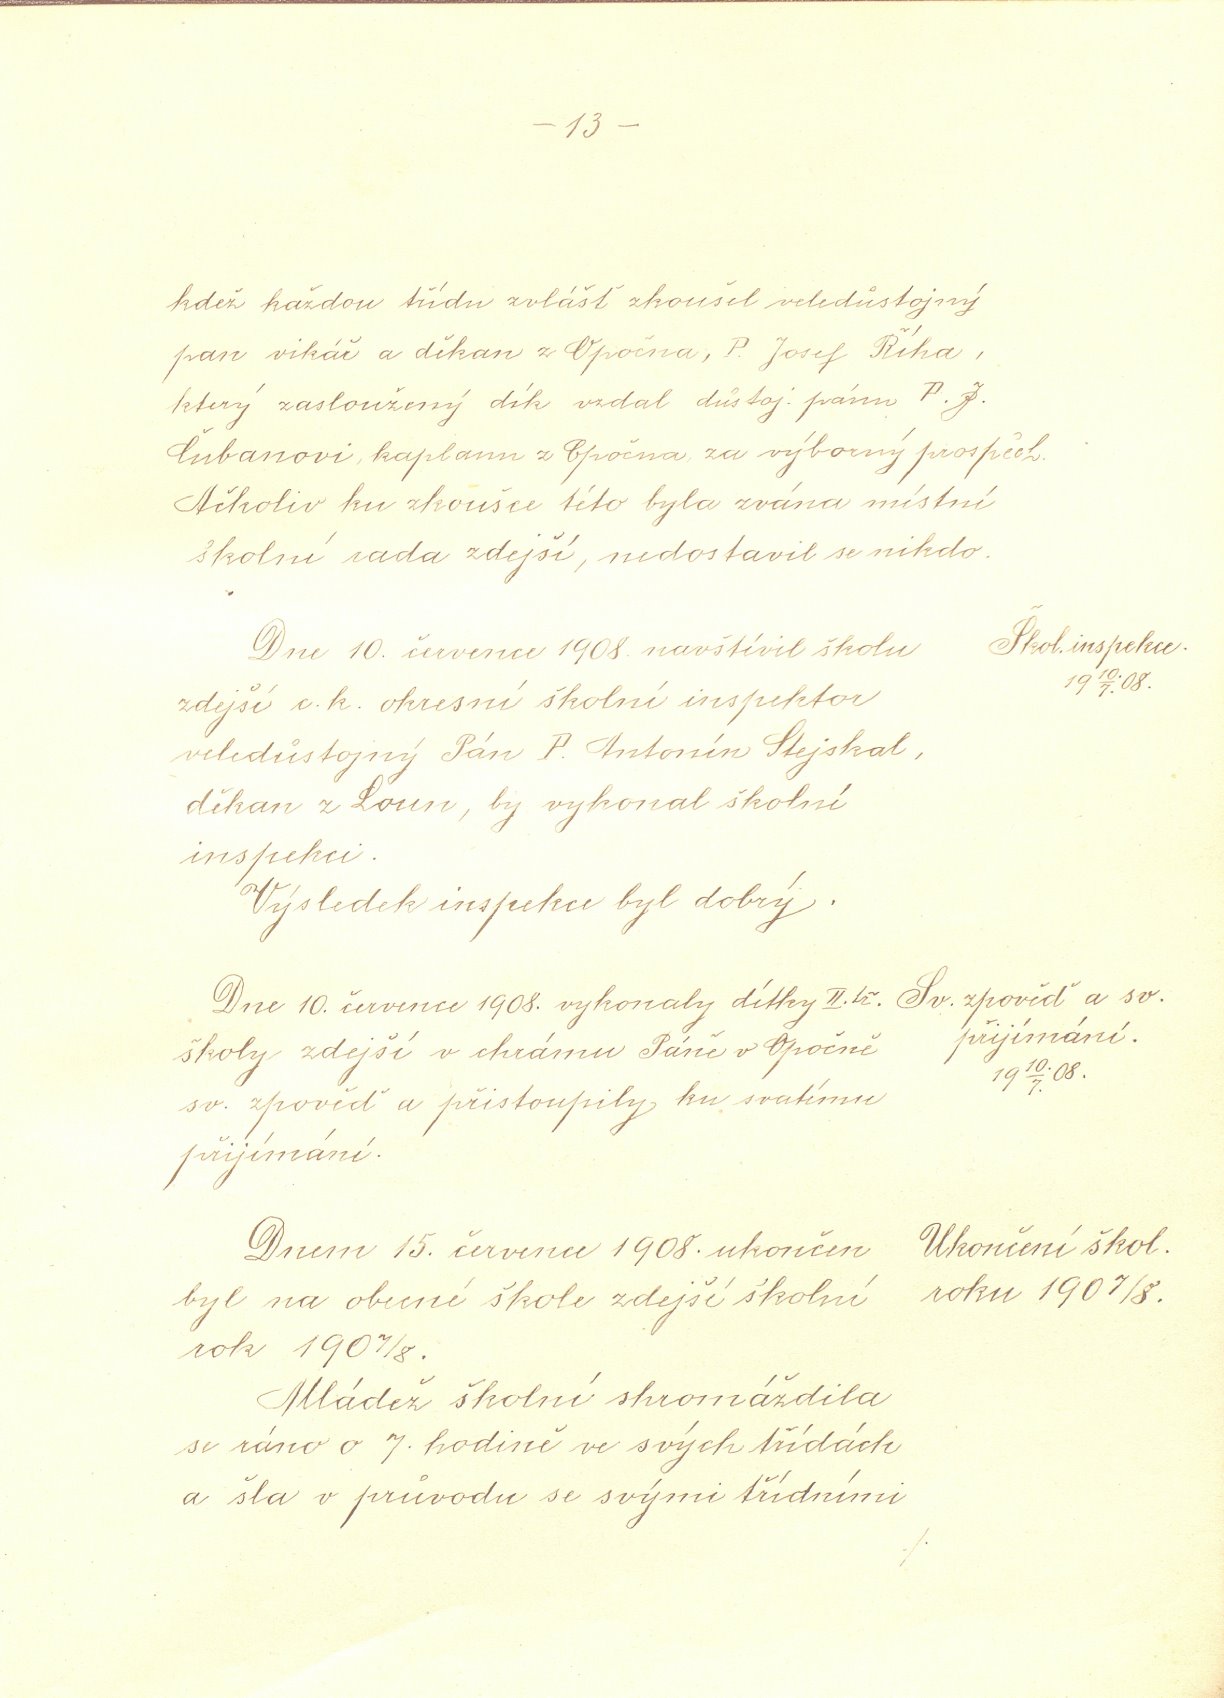 — 13 —
kdež každou třídu zvlášť zkoušel veledůstojný
pan vikář a děkan z Opočna, P. Josef Říha,
který zasloužený dík vzdal důstoj. pánu P. J.
Čubanovi, kaplanu z Opočna, za výborný prospěch.
Ačkoliv ku zkoušce této byla zvána místní
školní rada zdejší, nedostavil se nikdo.
Dne 10. července 1908. navštívil školu
zdejší c. k. okresní školní inspektor
veledůstojný Pán P. Antonín Stejskal,
děkan z Loun, by vykonal školní
inspekci.
Výsledek inspekce byl dobrý.
Škol. inspekce.
19 10./7. 08.
Dne 10. července 1908. vykonaly dítky II. tř.
školy zdejší v chrámu Páně v Opočně
sv. zpověď a přistoupily ku svatému
přijímání.
Sv. zpověď a sv.
přijímání.
19 10./7. 08.
Dnem 15. července 1908. ukončen
byl na obecné škole zdejší školní
rok 1907/8.
Ukončení škol.
roku 1907/8.
Mládež školní shromáždila
se ráno o 7. hodině ve svých třídách
a šla v průvodu se svými třídními
./.